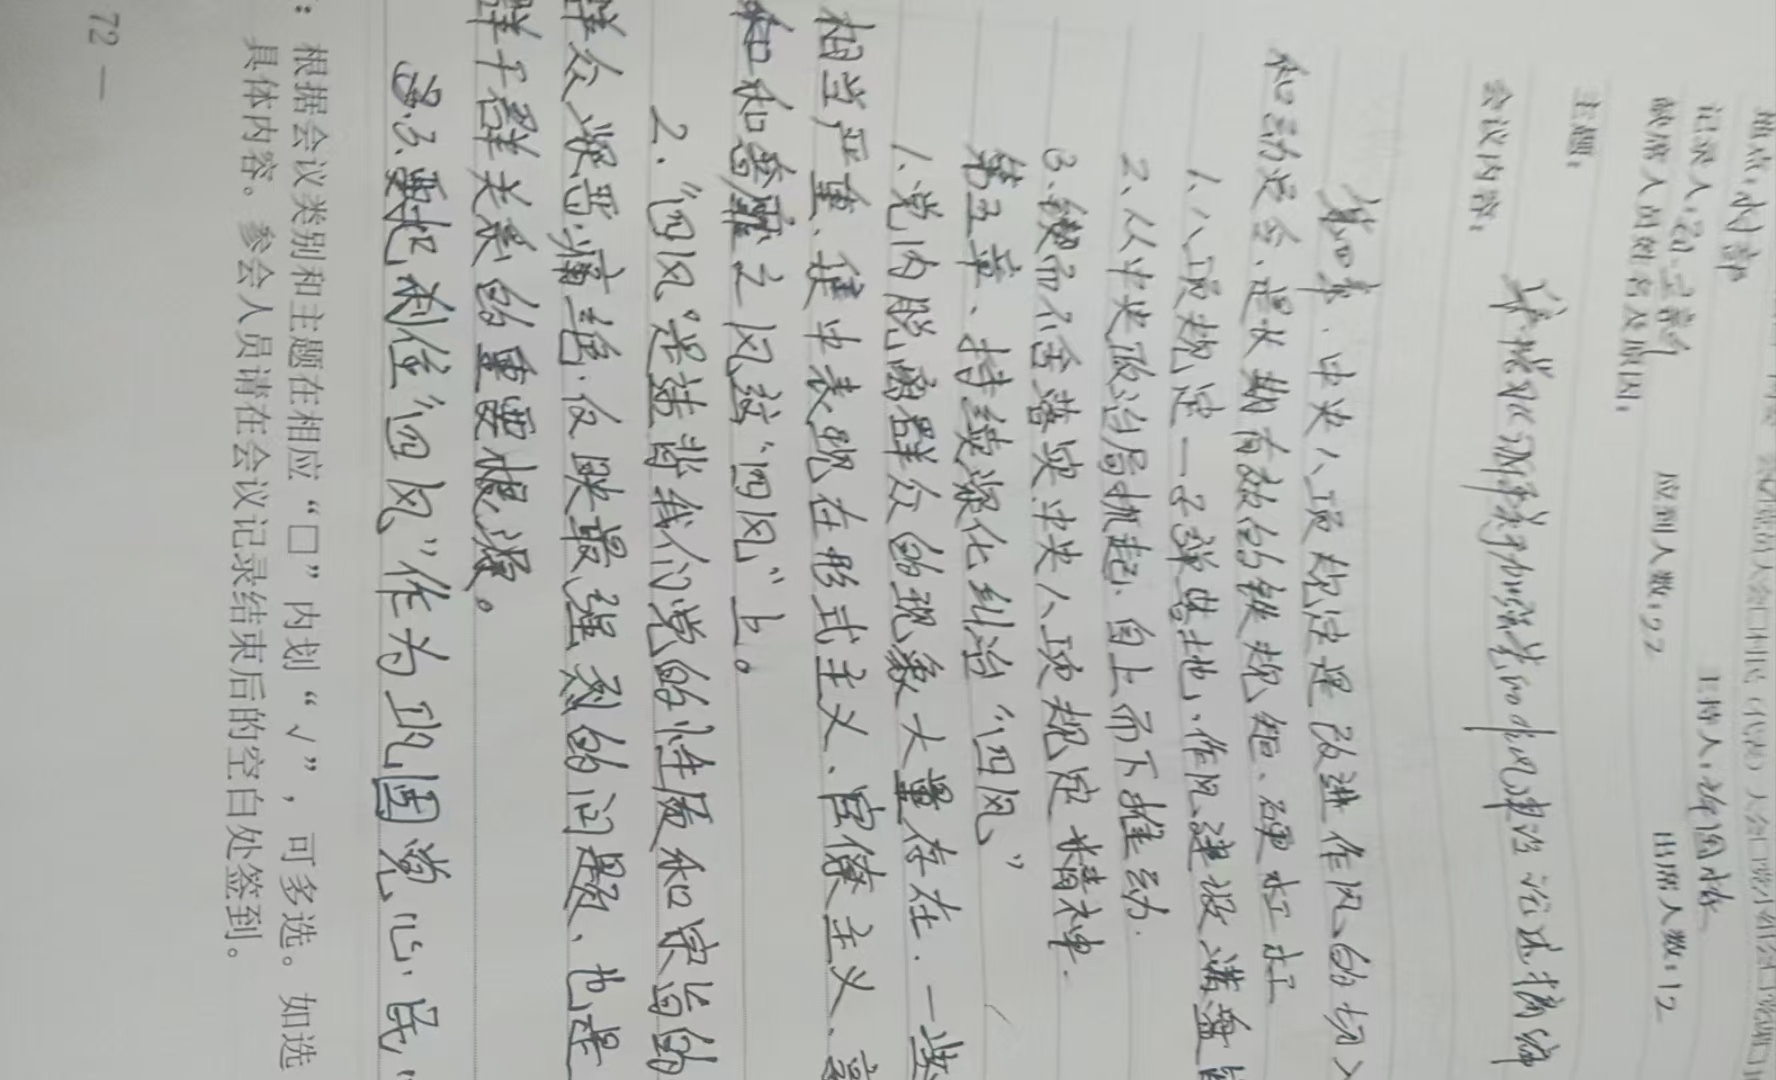 地点：村部
记录人：
主持人：
缺席人员姓名及原因：
应到人数：22
出席人数：12
主题：
会议内容：
加强党的作风建设论述摘编
第四章、中央八项规定是改进作风的切入
和动员令、是长期有效的铁规矩、硬杠杠
1、八项规定一子落地、作风建设满盘
2、从中央政治局抓起、自上而下推动.
3、锲而不舍落实中央八项规定精神.
第五章、持续深化纠治“四风”
1、党内脱离群众的现象大量存在.一些
相当严重、集中表现在形式主义、官僚主义、享
和奢靡之风这“四风”上。
2.“四风”是违背我们党的性质和宗旨的
群众深恶痛绝.反映最强烈的问题、也是
群干群关系的重要根源。
3.要把刹住“四风”作为巩固党心.民心
：根据会议类别和主题在相应“□”内划“√”，可多选。如选
具体内容。参会人员请在会议记录结束后的空白处签到。
72 —